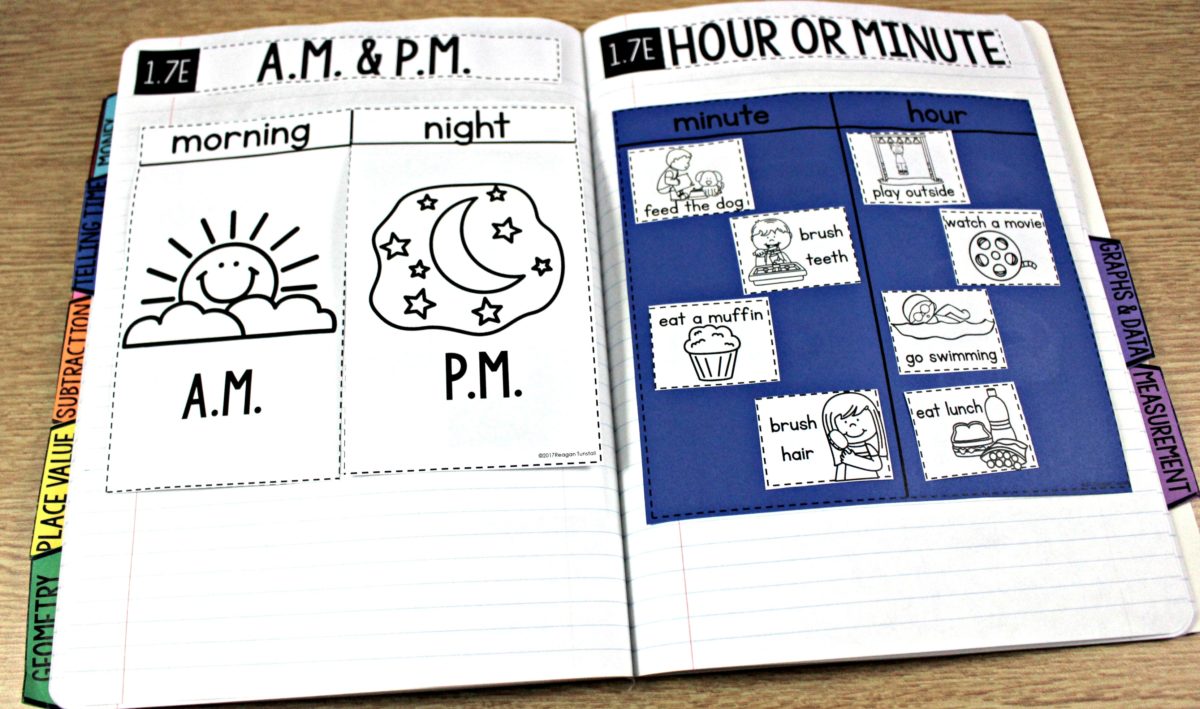 1.7E
A.M. & P.M.
morning
night
A.M.
P.M.
©2017Reagan Tunstall
1.7E
HOUR OR MINUTE
minute
hour
feed the dog
brush
teeth
eat a muffin
brush
hair
play outside
watch a movie
go swimming
eat lunch
MONEY
TELLING TIME
SUBTRACTION
PLACE VALUE
GEOMETRY
GRAPHS & DATA
MEASUREMENT